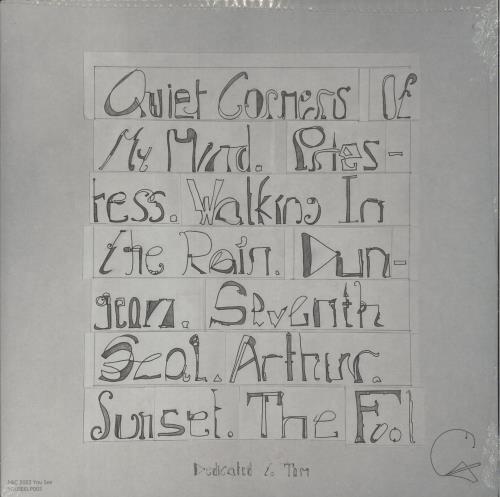 Quiet Corners Of
My Mind. Pries-
tess. Walking In
the Rain. Dun-
geon. Seventh
Seal. Arthur.
Sunset. The Fool
Dedicated to Tom
P&C 2023 You See